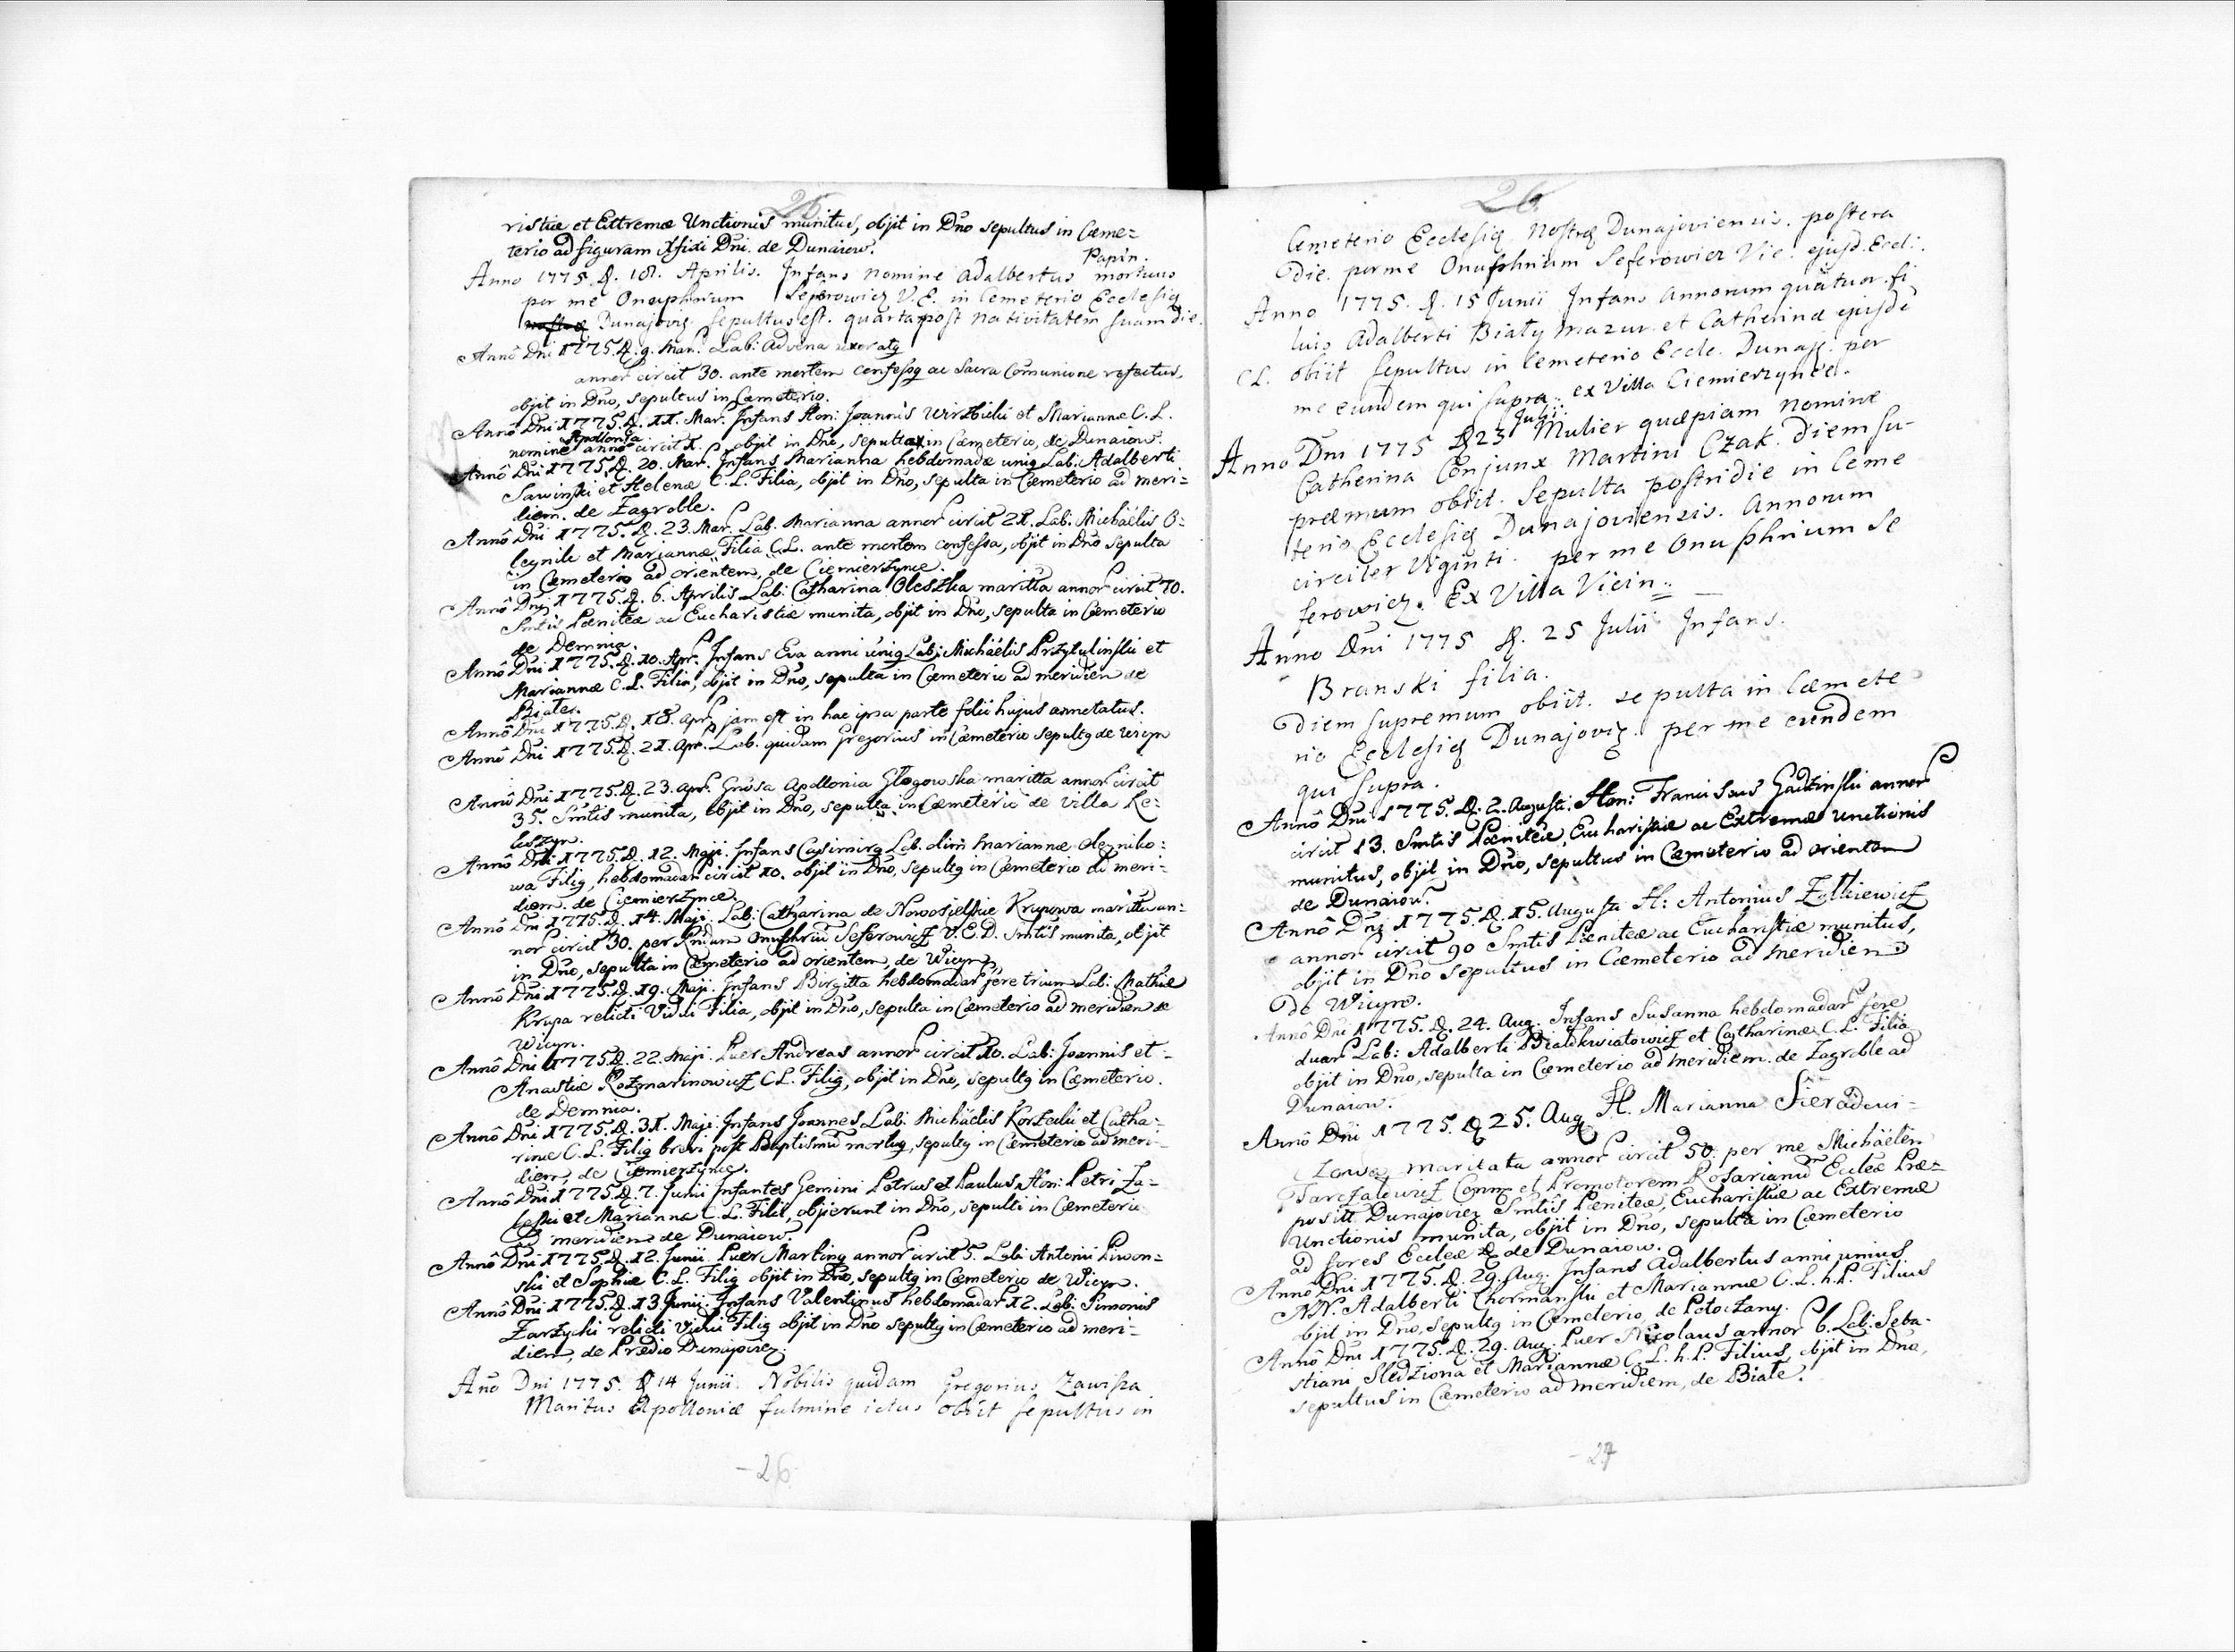 25
ristiæ et Extremæ Unctionis munitus, objit in Dno sepultus in Cæme=
terio ad figuram Xfixi Dni. de Dunaiow.
Papin.
Anno 1775 D. 18. Aprilis. Infans nomine Adalbertus mortuus
per me Onuphrium Seferowicz V.E. in Cemeterio Ecclesiæ
Dunajoviẽ. sepultus est. quarta post nativitatem suam die.
Annô Dni 1775. D. 9. Mar. Lab: Advena uxoratq
annor circit 30. ante mortem confessq ac Sacra Comunione refectus,
objit in Dno, sepultus in Cæmeterio.
Annô Dni 1775. D. 11. Mar. Infans Hon: Joannis Wirzbicki et Mariannæ C.L.
Apollonia
nomine anno circit 1. objit in Dno, sepulta in Cæmeterio, de Dunaiow.
Annô Dni 1775. D. 20. Mar. Infans Marianna hebdomadæ uniq Lab: Adalberti
Sawinski et Helenæ C.L. Filia, objit in Dno, sepulta in Cæmeterio ad meri=
diem. de Zagroble.
Annô Dni 1775. D. 23. Mar. Lab. Marianna annor circit 21. Lab: Michaëlis O=
leynik et Mariannæ Filia C.L. ante mortem confessa, objit in Dno sepulta
in Cæmeterio ad orientem, de Ciemierzynce.
Annô Dni 1775. D. 6. Aprilis Lab: Catharina Oleszka maritta annor circit 70.
Smtis Pœnitæ ac Eucharistiæ munita, objit in Dno, sepulta in Cæmeterio
de Demnia.
Annô Dni 1775. D. 10. Apr. Infans Eva anni uniq Lab: Michaëlis Przytulinski et
Mariannæ C.L. Filia, objit in Dno, sepulta in Cæmeterio ad meridien de
Biate.
Annô Dni 1775. D. 18. apr. jam est in hac ipsa parte folii hujus annotatus.
Annô Dni 1775. D. 21. Apr. Lab. quidam Gregorius in Cæmeterio sepultq de Wicyn
Annô Dni 1775. D. 23. apr. Gnosa Apollonia Głogowska maritta annor circit
35. Smtis munita, objit in Dno, sepulta in Cæmeterio de Villa Re=
liszyn.
Annô Dni 1775. D. 12. Maji. Infans Casimirq Lab. olim Mariannæ Oleyniko=
wa Filiq, hebdomadar circit 10. objit in Dno, sepultq in Cæmeterio ad meri=
diem. de Ciemierzynce.
Annô Dni 1775. D. 14. Maji. Lab: Catharina de Nowosielskie Krupowa maritta an=
nor circit 30. per Rndum Onuphriu Seferowicz V.E.D. Smtis munita, objit
in Dno, sepulta in Cæmeterio ad orientem, de Wicyn
Annô Dni 1775. D. 19. Maji. Infans Birgitta hebdomadar fere trium Lab: Mathiæ
Krupa relicti Vidui Filia, objit in Dno, sepulta in Cæmeterio ad meridien de
Wicyn.
Annô Dni 1775 D. 22. Maji. Puer Andreas annor circit 10. Lab: Joannis et
Anastiæ Rozmarinowicz C.L. Filiq, objit in Dno, sepultq in Cæmeterio.
de Demnia.
Annô Dni 1775. D. 31. Maji. Infans Joannes Lab. Michaëlis Korzecki et Catha=
rinæ C.L. Filiq brevi post Baptismu mortuq, sepultq in Cæmeterio ad meri=
diem, de Ciemierzynce.
Annô Dni 1775. D. 7. Junii Infantes Gemini Petrus et Paulus Hon: Petri Za=
leski et Marianna C.L. Filii, objierunt in Dno, sepulti in Cæmeterio
ad meridiem de Dunaiow.
Annô Dni 1775. D. 12. Junii Puer Martinq annor circit 5. Lab: Antonii Piwon=
ski et Sophiæ C.L. Filiq objit in Dno, sepultq in Cæmeterio de Wicyn.
Annô Dni 1775. D. 13 Junii. Infans Valentinus hebdomadar 12. Lab: Simonis
Zarzycki relicti Vidui Filiq objit in Dno sepultq in Cæmeterio ad meri=
diem, de Prædio Dunajoviẽ.
Año Dni 1775. D 14 Junii. Nobilis quidam Gregorius Zawisza
Maritus Apolloniæ fulmine ictus obiit sepultus in
- 26
26
Cemeterio Ecclesiæ Nostræ Dunajoviensis. postera
die. per me Onuphrium Seferowicz Vic: ejusd. Eccl:
Anno 1775. D. 15 Junii Infans Annorum quatuor. fi
lius Adalberti Biały Mazur. et Catherinæ ejusdẽ
CL. obiit sepultus in Cemeterio Eccle. Dunajẽ. per
me eundem qui supra. ex Villa Ciemierzynce.
Julii
Anno Dni 1775 D 23 Mulier quæpiam nomine
Catherina Conjunx Martini Czak. diem su-
præmum obiit. Sepulta postridie in Ceme
terio Ecclesiæ Dunajoviensis. Annorum
circiter Viginti. per me Onuphrium Se
ferowicz. Ex Villa Vicin..
Anno Dni 1775 D. 25 Julii Infans.
Branski filia.
diem supremum obiit. sepulta in Cæmete
rio Ecclesiæ Dunajoviẽ. per me eundem
qui supra.
Annô Dni 1775. D. 2. Augusti. Hon: Franciscus Gadzinski annor
circit 13. Smtis Pœnitæ, Eucharistiæ ac Extremæ Unctionis
munitus, objit in Dno, sepultus in Cæmeterio ad orientem
de Dunaiow.
Annô Dni 1775. D. 15. Augusti H: Antonius Zołkiewicz
annor circit 90 Smtis Pœnitæ ac Eucharistiæ munitus,
objit in Dno sepultus in Cæmeterio ad meridien
de Wicyn.
Annô Dni 1775. D. 24. Aug. Infans Susanna hebdomadar fere
duar Lab: Adalberti Białokwiatowicz et Catharinæ C.L. Filia
objit in Dno, sepulta in Cæmeterio ad meridiem. de Zagroble ad
Dunaiow.
Annô Dni 1775. D 25. Aug H. Marianna Sieradcui=
zowa maritata annor circit 50. per me Michaëlem
Tarczałowicz Comm et Promotorem Rosarianu Eccleæ Præ=
positt Dunajovieẽ Smtis Pœnitæ, Eucharistiæ ac Extremæ
Unctionis munita, objit in Dno, sepulta in Cæmeterio
ad fores Eccleæ de Dunaiow.
Annô Dni 1775. D. 29. Aug. Infans Adalbertus anni unius
NN. Adalberti Chormanski et Mariannæ C.L. h.P. Filius
objit in Dno, sepultq in Cæmeterio, de Potoczany.
Annô Dni 1775. D. 29. Aug. Puer Nicolaus annor 6. Lab: Seba-
stiani Sledziona et Mariannæ C.L. h.P. Filius, objit in Dno,
sepultus in Cæmeterio ad meridiem, de Biate.
- 27